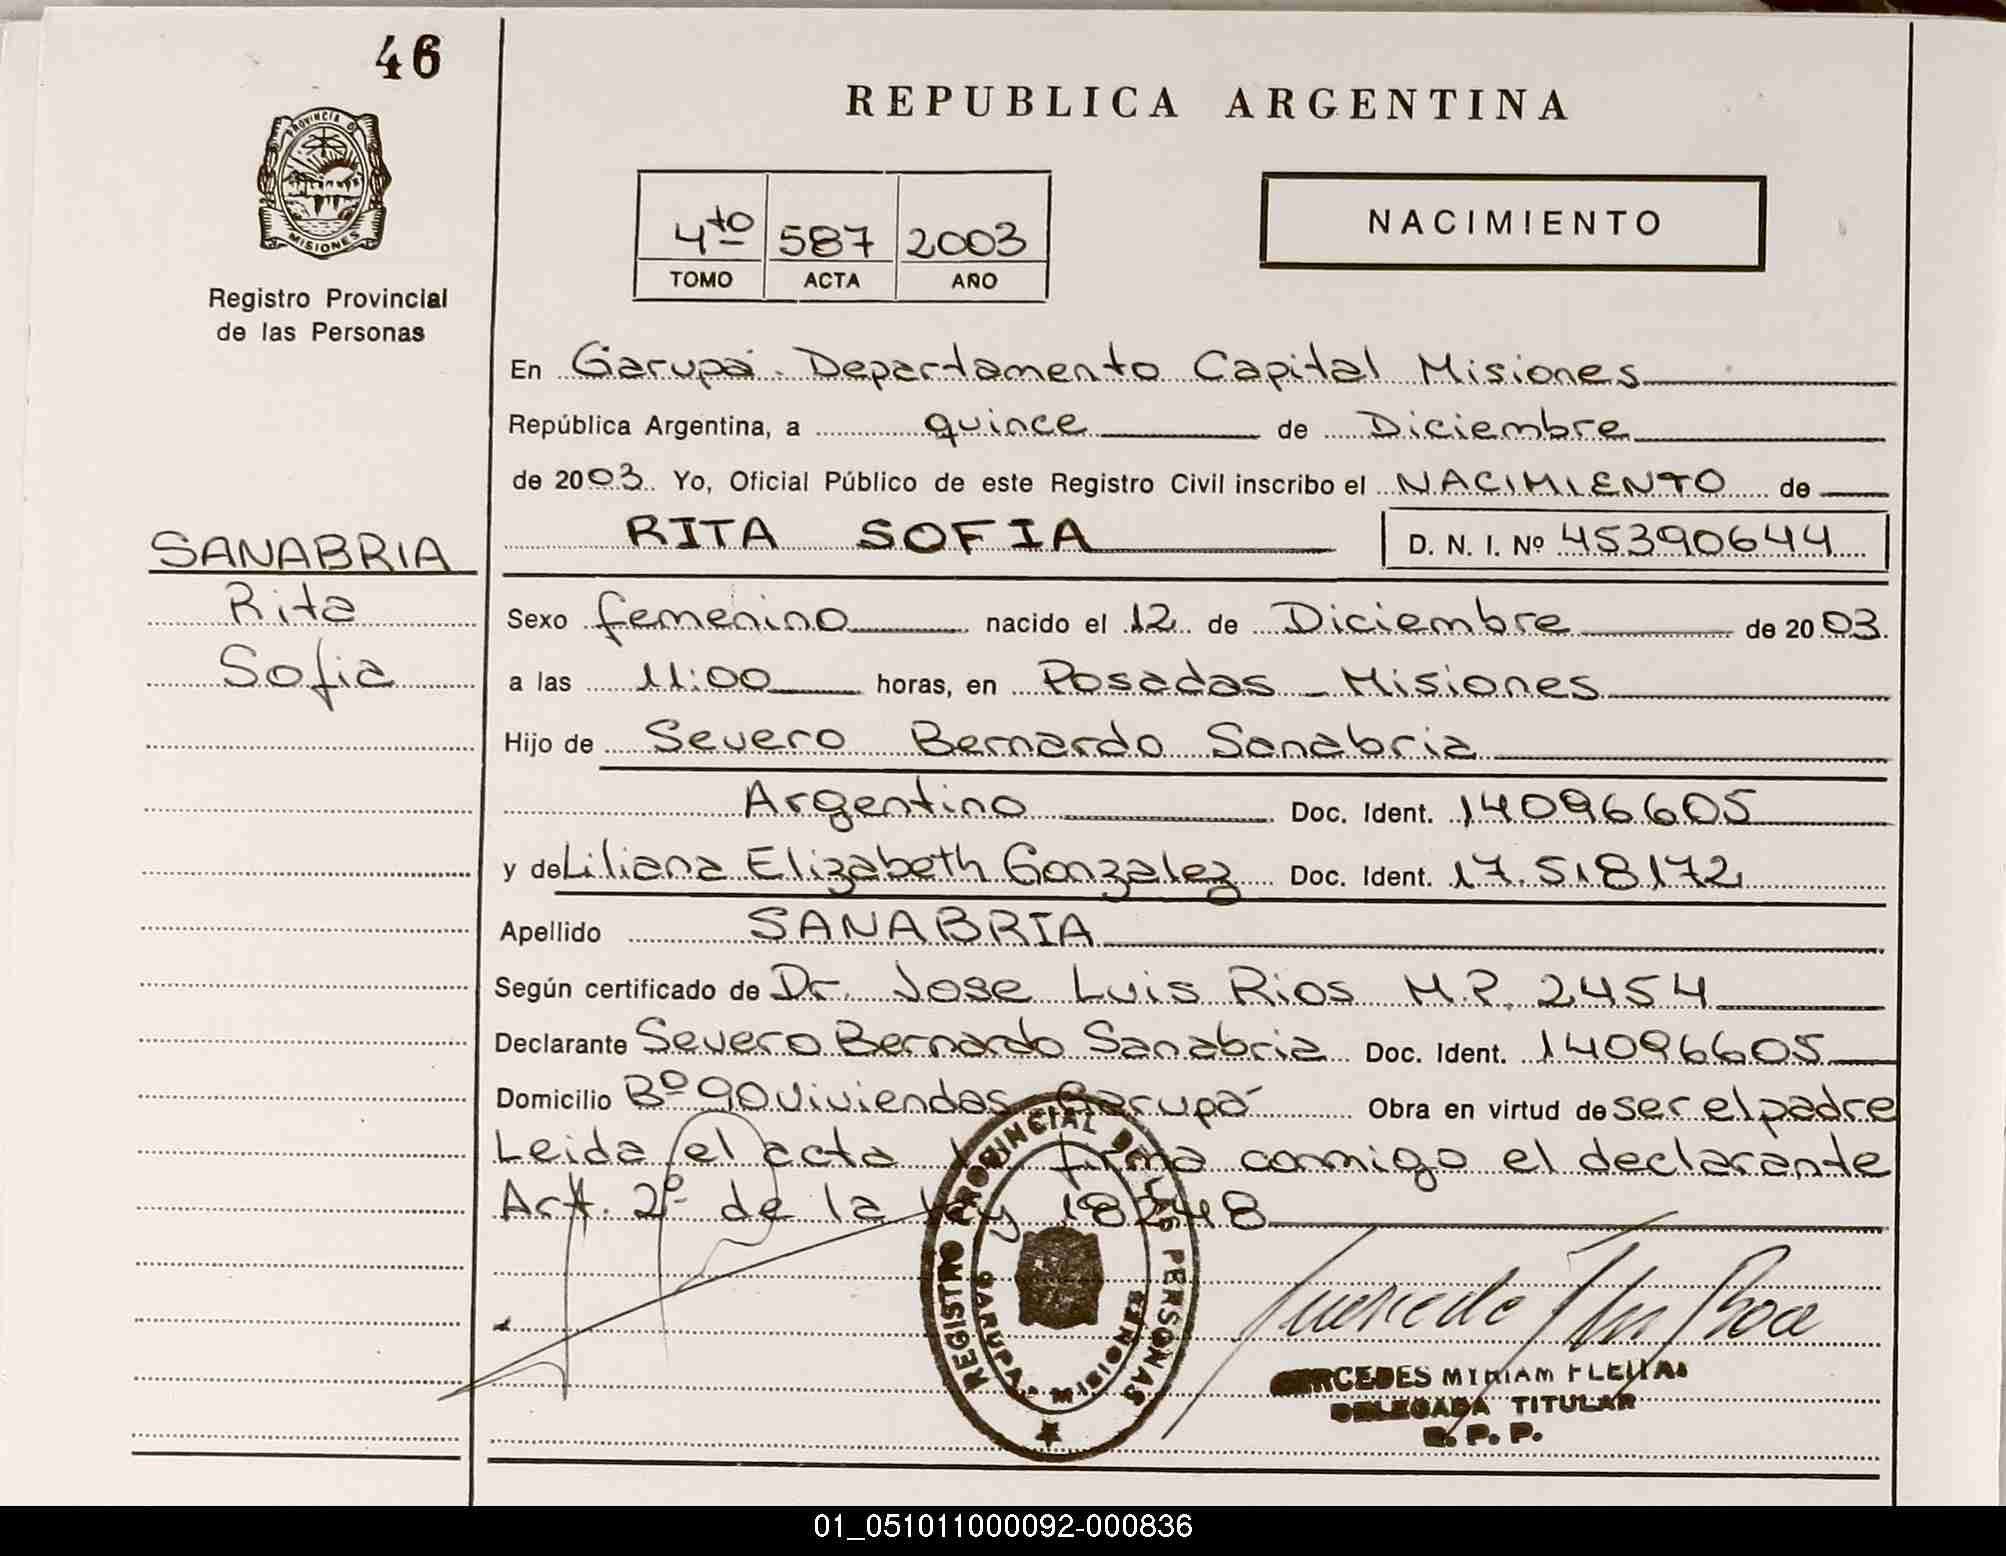 46
REPUBLICA ARGENTINA
PROVINCIA D
MISIONES
4to 587 2003
TOMO ACTA AÑO
NACIMIENTO
Registro Provincial
de las Personas
En Garupá. Departamento Capital Misiones
República Argentina, a quince de Diciembre
de 2003. Yo, Oficial Público de este Registro Civil inscribo el NACIMIENTO de
RITA SOFIA D. N. I. Nº 45390644
SANABRIA
Rita
Sofia
Sexo femenino nacido el 12 de Diciembre de 2003.
a las 11:00 horas, en Posadas - Misiones
Hijo de Severo Bernardo Sanabria
Argentino Doc. Ident. 14096605
y de Liliana Elizabeth Gonzalez Doc. Ident. 17.518172
Apellido SANABRIA
Según certificado de Dr. Jose Luis Rios M.P. 2454
Declarante Severo Bernardo Sanabria Doc. Ident. 14096605
Domicilio Bº 90 viviendas Garupá Obra en virtud de ser el padre
Leida el acta la firma conmigo el declarante
Art. 2º de la ley 18248
REGISTRO PROVINCIAL DE LAS PERSONAS
GARUPA - MISIONES
MERCEDES MYRIAM FLEITAS
DELEGADA TITULAR
R. P. P.
01_051011000092-000836